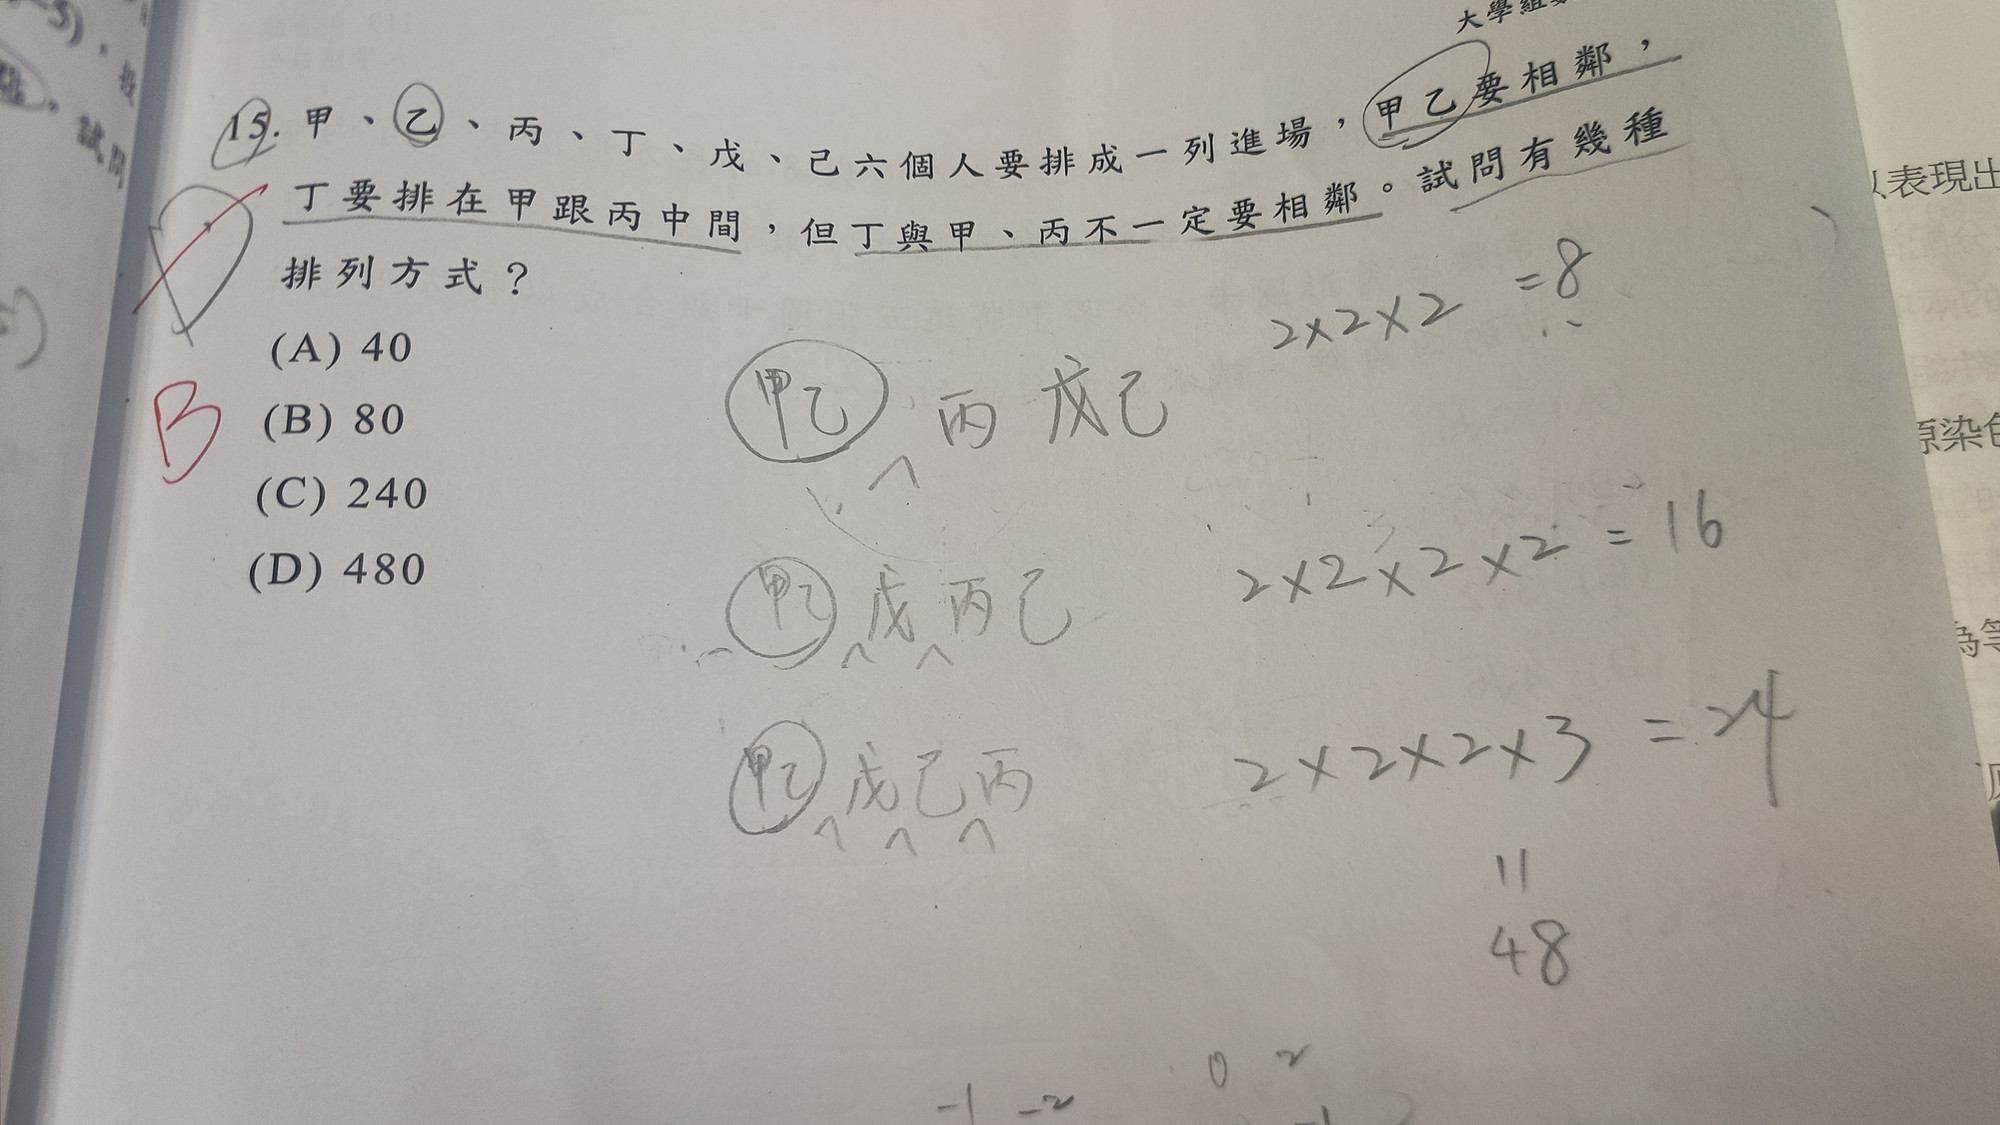 大學組
15. 甲、乙、丙、丁、戊、己六個人要排成一列進場，甲乙要相鄰，
丁要排在甲跟丙中間，但丁與甲、丙不一定要相鄰。試問有幾種
排列方式？
(A) 40
(B) 80
(C) 240
(D) 480
B
2×2×2 =8
甲乙 丙 戊己
2×2×2×2 = 16
甲乙 戊 丙 己
2×2×2×3 = 24
甲乙 戊己丙
11
48
0 2
-1 -2
試問
以表現出
原染色
為等